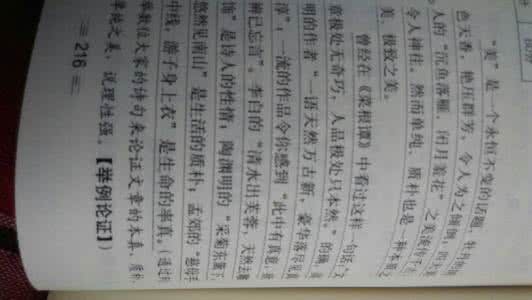 "美"是一个永恒不变的话题。牡丹国
色天香,艳压群芳,令人为之倾倒;四大
人的"沉鱼落雁、闭月羞花"之美流传千
令人神往。然而单纯、质朴也是一种本
美,极致之美。
曾经在《菜根谭》中看过这样一句话:"文
章极处无奇巧,人品极处只本然。"的确,
明的作者"一语天然万古新,豪华落尽见真
淳",一流的作品令你感到"此中有真意,欲
辨已忘言"。李白的"清水出芙蓉,天然去雕
饰"是诗人的性情;陶渊明的"采菊东篱下
悠然见南山"是生活的质朴;孟郊的"慈母手
中线,游子身上衣"是生命的率真。(通过列
举数位大家的诗句来论证文章的本真、质朴
单纯之美,说理性强。【举例论证】)
216